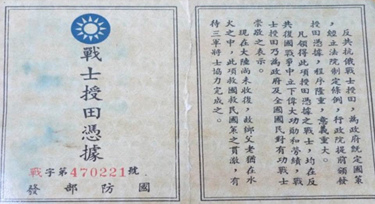 戰士授田憑據
戰字第470221號
國防部發
反共抗俄戰士授田,為政府既定國策
,經立法院制定條例,行政院提前頒發
授田憑據,程序隆重,意義重大。
凡領得此項授田憑據之戰士,均在反
共復國戰爭中立下偉大功勛和勞績,戰
士授田乃為政府及全國國民對有功戰士
崇敬之表示。
現在大陸尚未收復,故鄉父老猶在水
火之中,此項救國救民國策之貫澈,有
待三軍將士協力完成之。